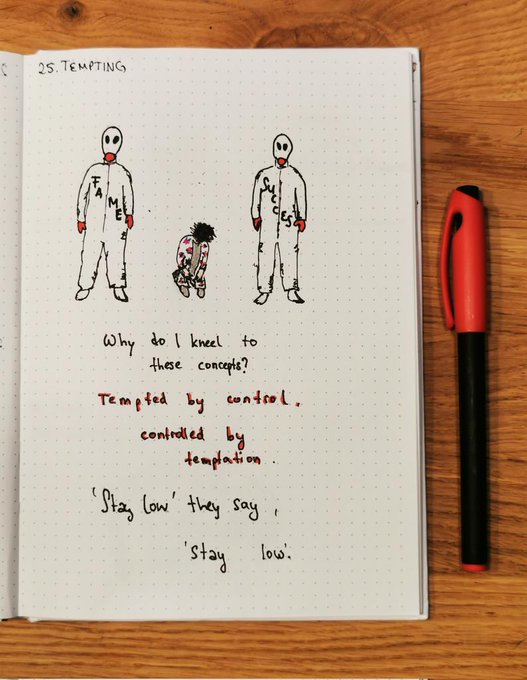 25. TEMPTING
FA ME
SUCCES
Why do I kneel to
these concepts?
Tempted by control,
controlled by
temptation.
'Stay low' they say,
'stay low'.